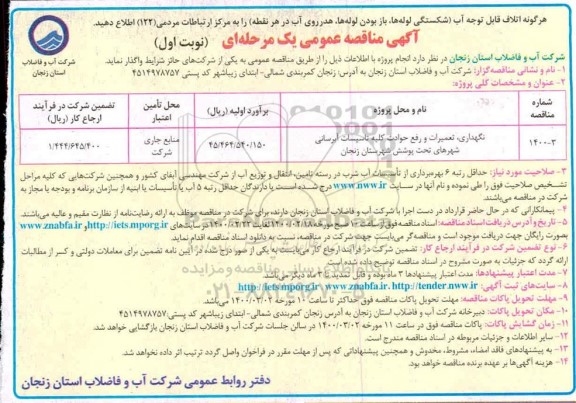 هرگونه اتلاف قابل توجه آب (شکستگی لوله‌ها، باز بودن لوله‌ها، هدرروی آب در هر نقطه) را به مرکز ارتباطات مردمی(۱۲۲) اطلاع دهید.
آگهی مناقصه عمومی یک مرحله‌ای (نوبت اول)
شرکت آب و فاضلاب
استان زنجان
شرکت آب و فاضلاب استان زنجان در نظر دارد انجام پروژه با اطلاعات ذیل را از طریق مناقصه عمومی به یکی از شرکت‌های حائز شرایط واگذار نماید.
۱- نام و نشانی مناقصه‌گزار: شرکت آب و فاضلاب استان زنجان به آدرس: زنجان کمربندی شمالی- ابتدای زیباشهر کد پستی ۴۵۱۴۹۷۸۷۵۷
۲- عنوان و مشخصات کلی پروژه:
شماره مناقصه | نام و محل پروژه | برآورد اولیه (ریال) | محل تأمین اعتبار | تضمین شرکت در فرآیند ارجاع کار (ریال)
۱۴۰۰-۳ | نگهداری، تعمیرات و رفع حوادث کلیه تأسیسات آبرسانی شهرهای تحت پوشش شهرستان زنجان | ۴۵/۴۶۴/۵۴۰/۱۵۰ | منابع جاری شرکت | ۱/۴۴۴/۶۴۵/۴۰۰
۳- صلاحیت مورد نیاز: حداقل رتبه ۶ بهره‌برداری از تأسیسات آب شرب در رسته تامین، انتقال و توزیع آب از شرکت مهندسی آبفای کشور و همچنین شرکت‌هایی که کلیه مراحل
تشخیص صلاحیت فوق را طی نموده و نام آنها در سایت www.nww.ir درج شده است یا دارندگان حداقل رتبه ۵ آب یا تأسیسات یا ابنیه از سازمان برنامه و بودجه یا مجاز به
شرکت در مناقصه می‌باشند.
۴- پیمانکارانی که در حال حاضر قرارداد در دست اجرا با شرکت آب و فاضلاب استان زنجان دارند، برای شرکت در مناقصه موظف به ارائه رضایت‌نامه از نظارت مقیم و عالیه می‌باشند.
۵- تاریخ و آدرس دریافت اسناد مناقصه: اسناد مناقصه فوق از ساعت ۱۰ صبح مورخه ۱۴۰۰/۰۲/۱۸ لغایت ۱۴۰۰/۰۲/۲۲ در سایت‌های http://iets.mporg.ir و www.znabfa.ir
بصورت رایگان جهت دریافت موجود است و مناقصه‌گر می‌بایست جهت شرکت در مناقصه، نسبت به دانلود اسناد مناقصه اقدام نماید.
۶- نوع تضمین شرکت در فرآیند ارجاع کار: تضمین شرکت در فرآیند ارجاع کار می‌بایست به یکی از صور درج شده در آیین نامه تضمین برای معاملات دولتی و کسر از مطالبات
ارائه گردد که جزئیات به صورت مشروح در اسناد مناقصه توضیح داده شده است.
۷- مدت اعتبار پیشنهادها: مدت اعتبار پیشنهادها ۳ ماه بوده و قابل تمدید تا ۳ ماه دیگر می‌باشد.
۸- سایت‌های ثبت آگهی: http://iets.mporg.ir و www.znabfa.ir، http://tender.nww.ir
۹- مهلت تحویل پاکات مناقصه: مهلت تحویل پاکات مناقصه فوق حداکثر تا ساعت ۱۰ مورخه ۱۴۰۰/۰۳/۰۲
۱۰- مکان تحویل پاکات: دبیرخانه شرکت آب و فاضلاب استان زنجان به آدرس زنجان کمربندی شمالی- ابتدای زیباشهر کد پستی: ۴۵۱۴۹۷۸۷۵۷
۱۱- زمان گشایش پاکات: پاکات مناقصه فوق در ساعت ۱۱ مورخه ۱۴۰۰/۰۳/۰۲ در سالن جلسات شرکت آب و فاضلاب استان زنجان بازگشایی خواهد شد.
۱۲- سایر اطلاعات و جزئیات مربوطه در اسناد مناقصه مندرج است.
۱۳- به پیشنهادهای فاقد امضاء، مشروط، مخدوش و همچنین پیشنهاداتی که پس از مهلت مقرر در فراخوان واصل گردد ترتیب اثر داده نخواهد شد.
۱۴- هزینه آگهی‌ها بر عهده برنده مناقصه خواهد بود.
دفتر روابط عمومی شرکت آب و فاضلاب استان زنجان